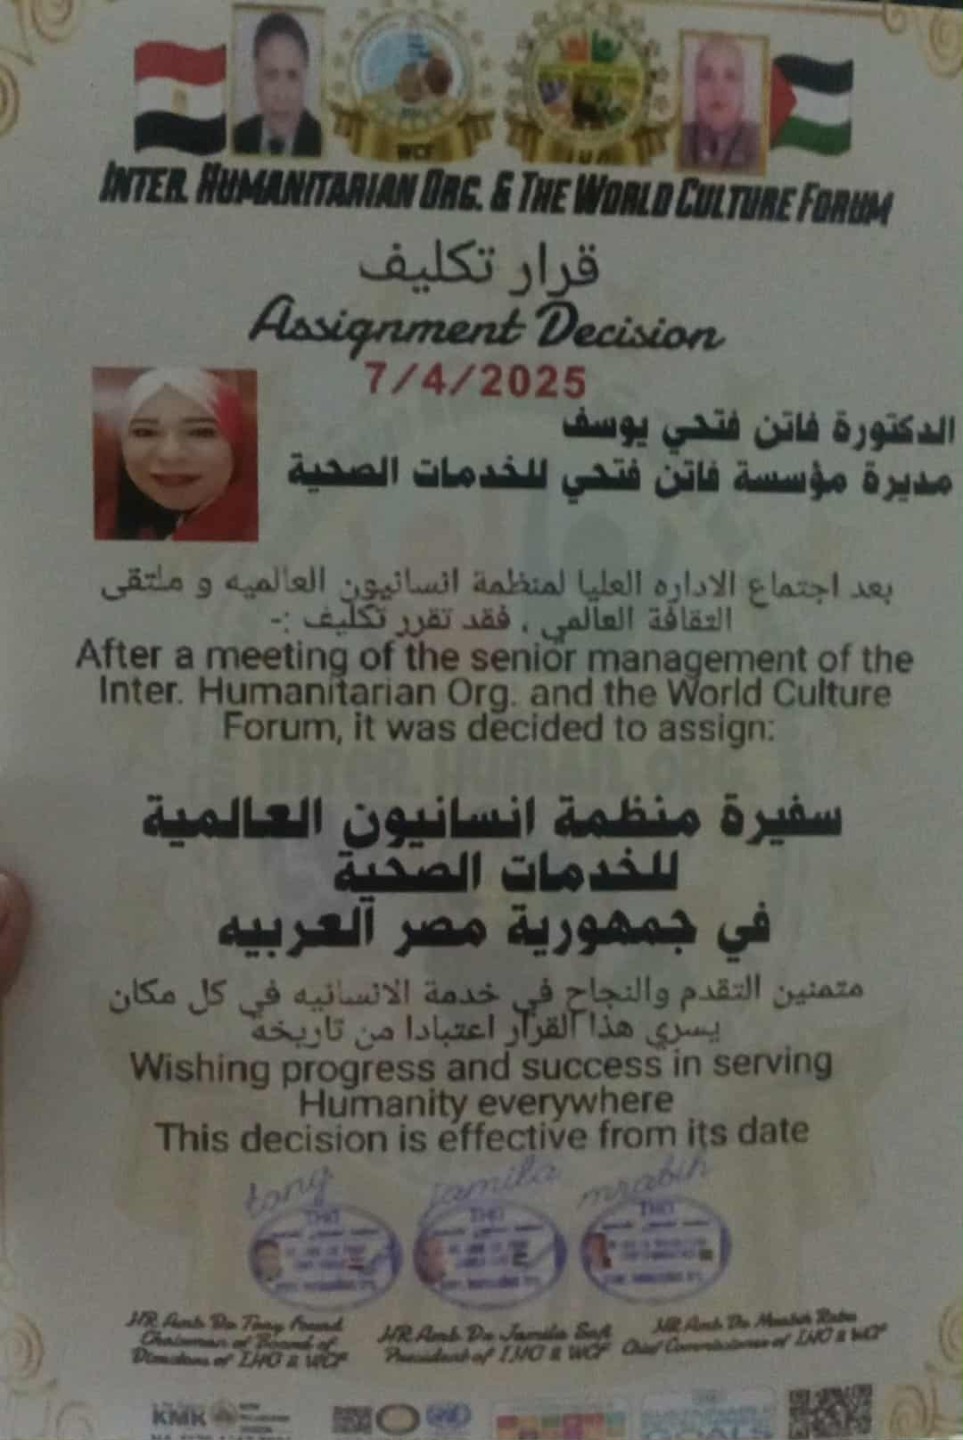 WCF
I.H.O
INTER. HUMANITARIAN ORG. & THE WORLD CULTURE FORUM
قرار تكليف
Assignment Decision
7/4/2025
الدكتورة فاتن فتحي يوسف
مديرة مؤسسة فاتن فتحي للخدمات الصحية
بعد اجتماع الاداره العليا لمنظمة انسانيون العالميه و ملتقى
الثقافة العالمي ، فقد تقرر تكليف :-
After a meeting of the senior management of the
Inter. Humanitarian Org. and the World Culture
Forum, it was decided to assign:
سفيرة منظمة انسانيون العالمية
للخدمات الصحية
في جمهورية مصر العربيه
متمنين التقدم والنجاح في خدمة الانسانيه في كل مكان
يسري هذا القرار اعتبادا من تاريخه
Wishing progress and success in serving
Humanity everywhere
This decision is effective from its date
tony jamila mrabih
IHO IHO IHO
HR Amb Dr Tony Fouad
Chairman of Board of
Directors of IHO & WCF
HR Amb Dr Jamila Safi
President of IHO & WCF
HR Amb Dr
Chief Commissioner of IHO & WCF
KMK
GOALS